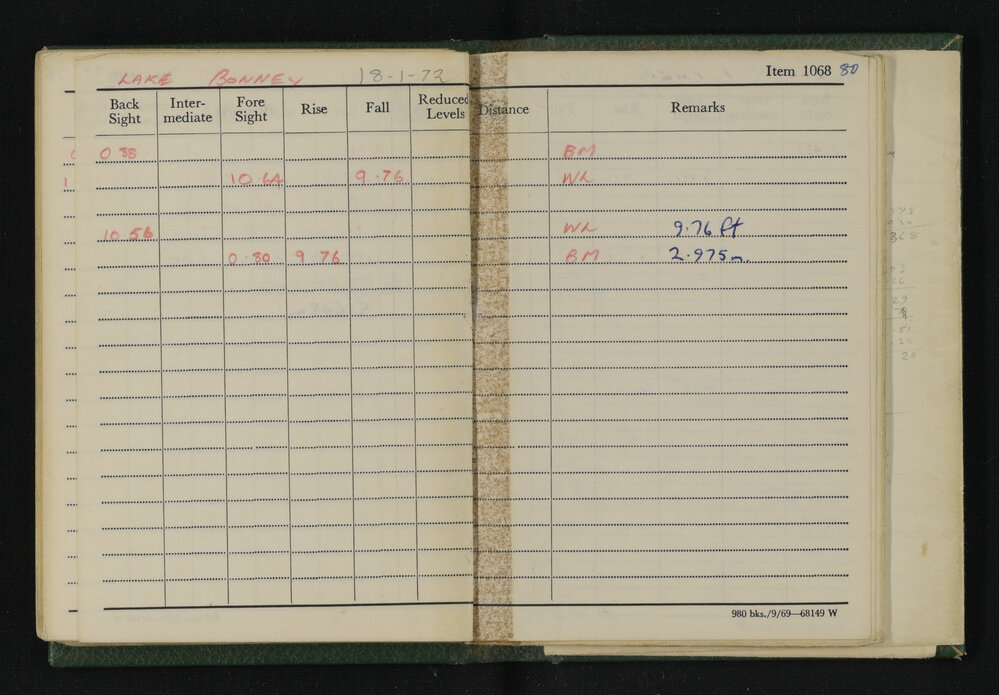 LAKE BONNEY 18-1-72 Item 1068 80
Back Sight Inter-mediate Fore Sight Rise Fall Reduced Levels Distance Remarks
0 88 BM
10.64 9.76 WL
10.56 WL 9.76 ft
0.80 9 76 BM 2.975m.
980 bks./9/69—68149 W